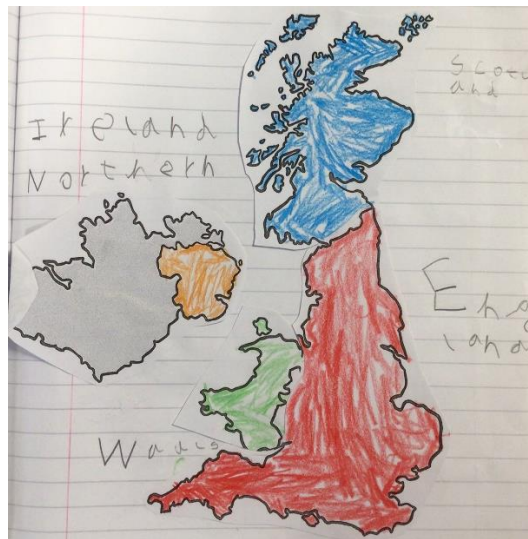 Scotl
and
Ireland
Northern
Eng
land
Waals